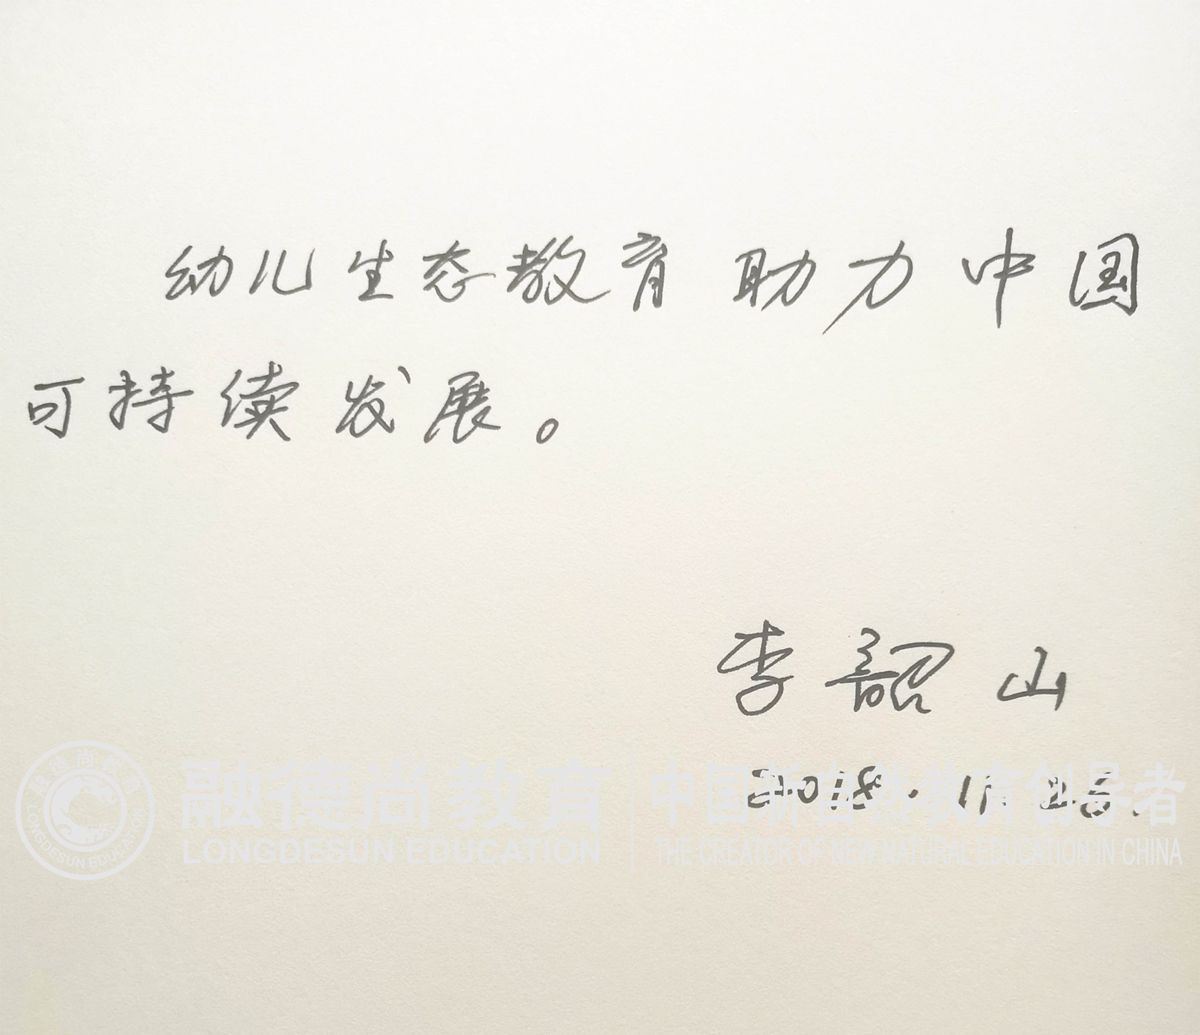 幼儿生态教育助力中国
可持续发展。
李韶山
2018.11.26.
融德尚教育
LONGDESUN EDUCATION
中国新自然教育创导者
THE CREATOR OF NEW NATURAL EDUCATION IN CHINA
融德尚教育
LONGDESUN EDUCATION